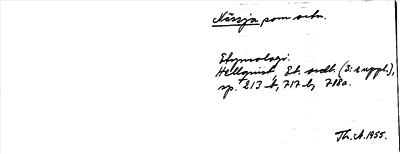 Nässja som ortn.
Etymologi:
Hellquist Et. ordb. (3: e uppl.),
sp. 213 b, 717 b, 718a.
Th. A. 1955.